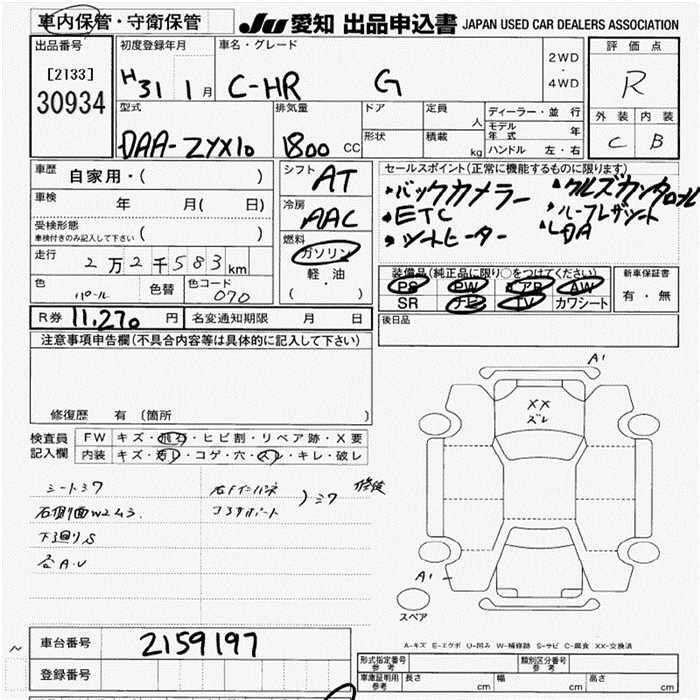 車内保管・守衛保管
JU 愛知 出品申込書 JAPAN USED CAR DEALERS ASSOCIATION
出品番号
[2133]
30934
初度登録年月
H 31 1 月
車名・グレード
C-HR G
2WD
・
4WD
評価点
R
外装 内装
C B
型式
DAA-ZYX10
排気量
1800 CC
ドア
形状
定員
人
積載
kg
ディーラー・並行
モデル年式 年
ハンドル 左・右
車歴 自家用・( )
車検 年 月( 日)
受検形態
車検付きのみ記入して下さい ( )
走行 2万2千583km
色 パール 色替 色コード 070
シフト AT
冷房 AAC
燃料
ガソリン
軽・油
( )
セールスポイント(正常に機能するものに限ります)
・バックカメラー
・ETC
・シートヒーター
・クルズカンタロール
・ハーフレザシート
・LDA
装備品(純正品に限り○をつけてください)
PS PW エアB AW
SR ナビ TV カワシート
新車保証書
有・無
R券 11,270 円 名変通知期限 月 日
後日品
注意事項申告欄(不具合内容等は具体的に記入して下さい)
修復歴 有 (箇所
検査員記入欄
FW キズ・飛石・ヒビ割・リペア跡・X要
内装 キズ・汚レ・コゲ・穴・スレ・キレ・破レ
シートシワ
右側面W2ムラ.
下廻りS
各A.U
右Fインパネ
コアサポート
)シワ 修復
A1
XX
ズレ
A1
スペア
A-キズ E-エクボ U-凹み W-補修跡 S-サビ C-腐食 XX-交換済
車台番号 2159197
登録番号
形式指定番号 参考
類別区分番号 参考
車庫証明用 参考 長さ cm 幅 cm 高さ cm